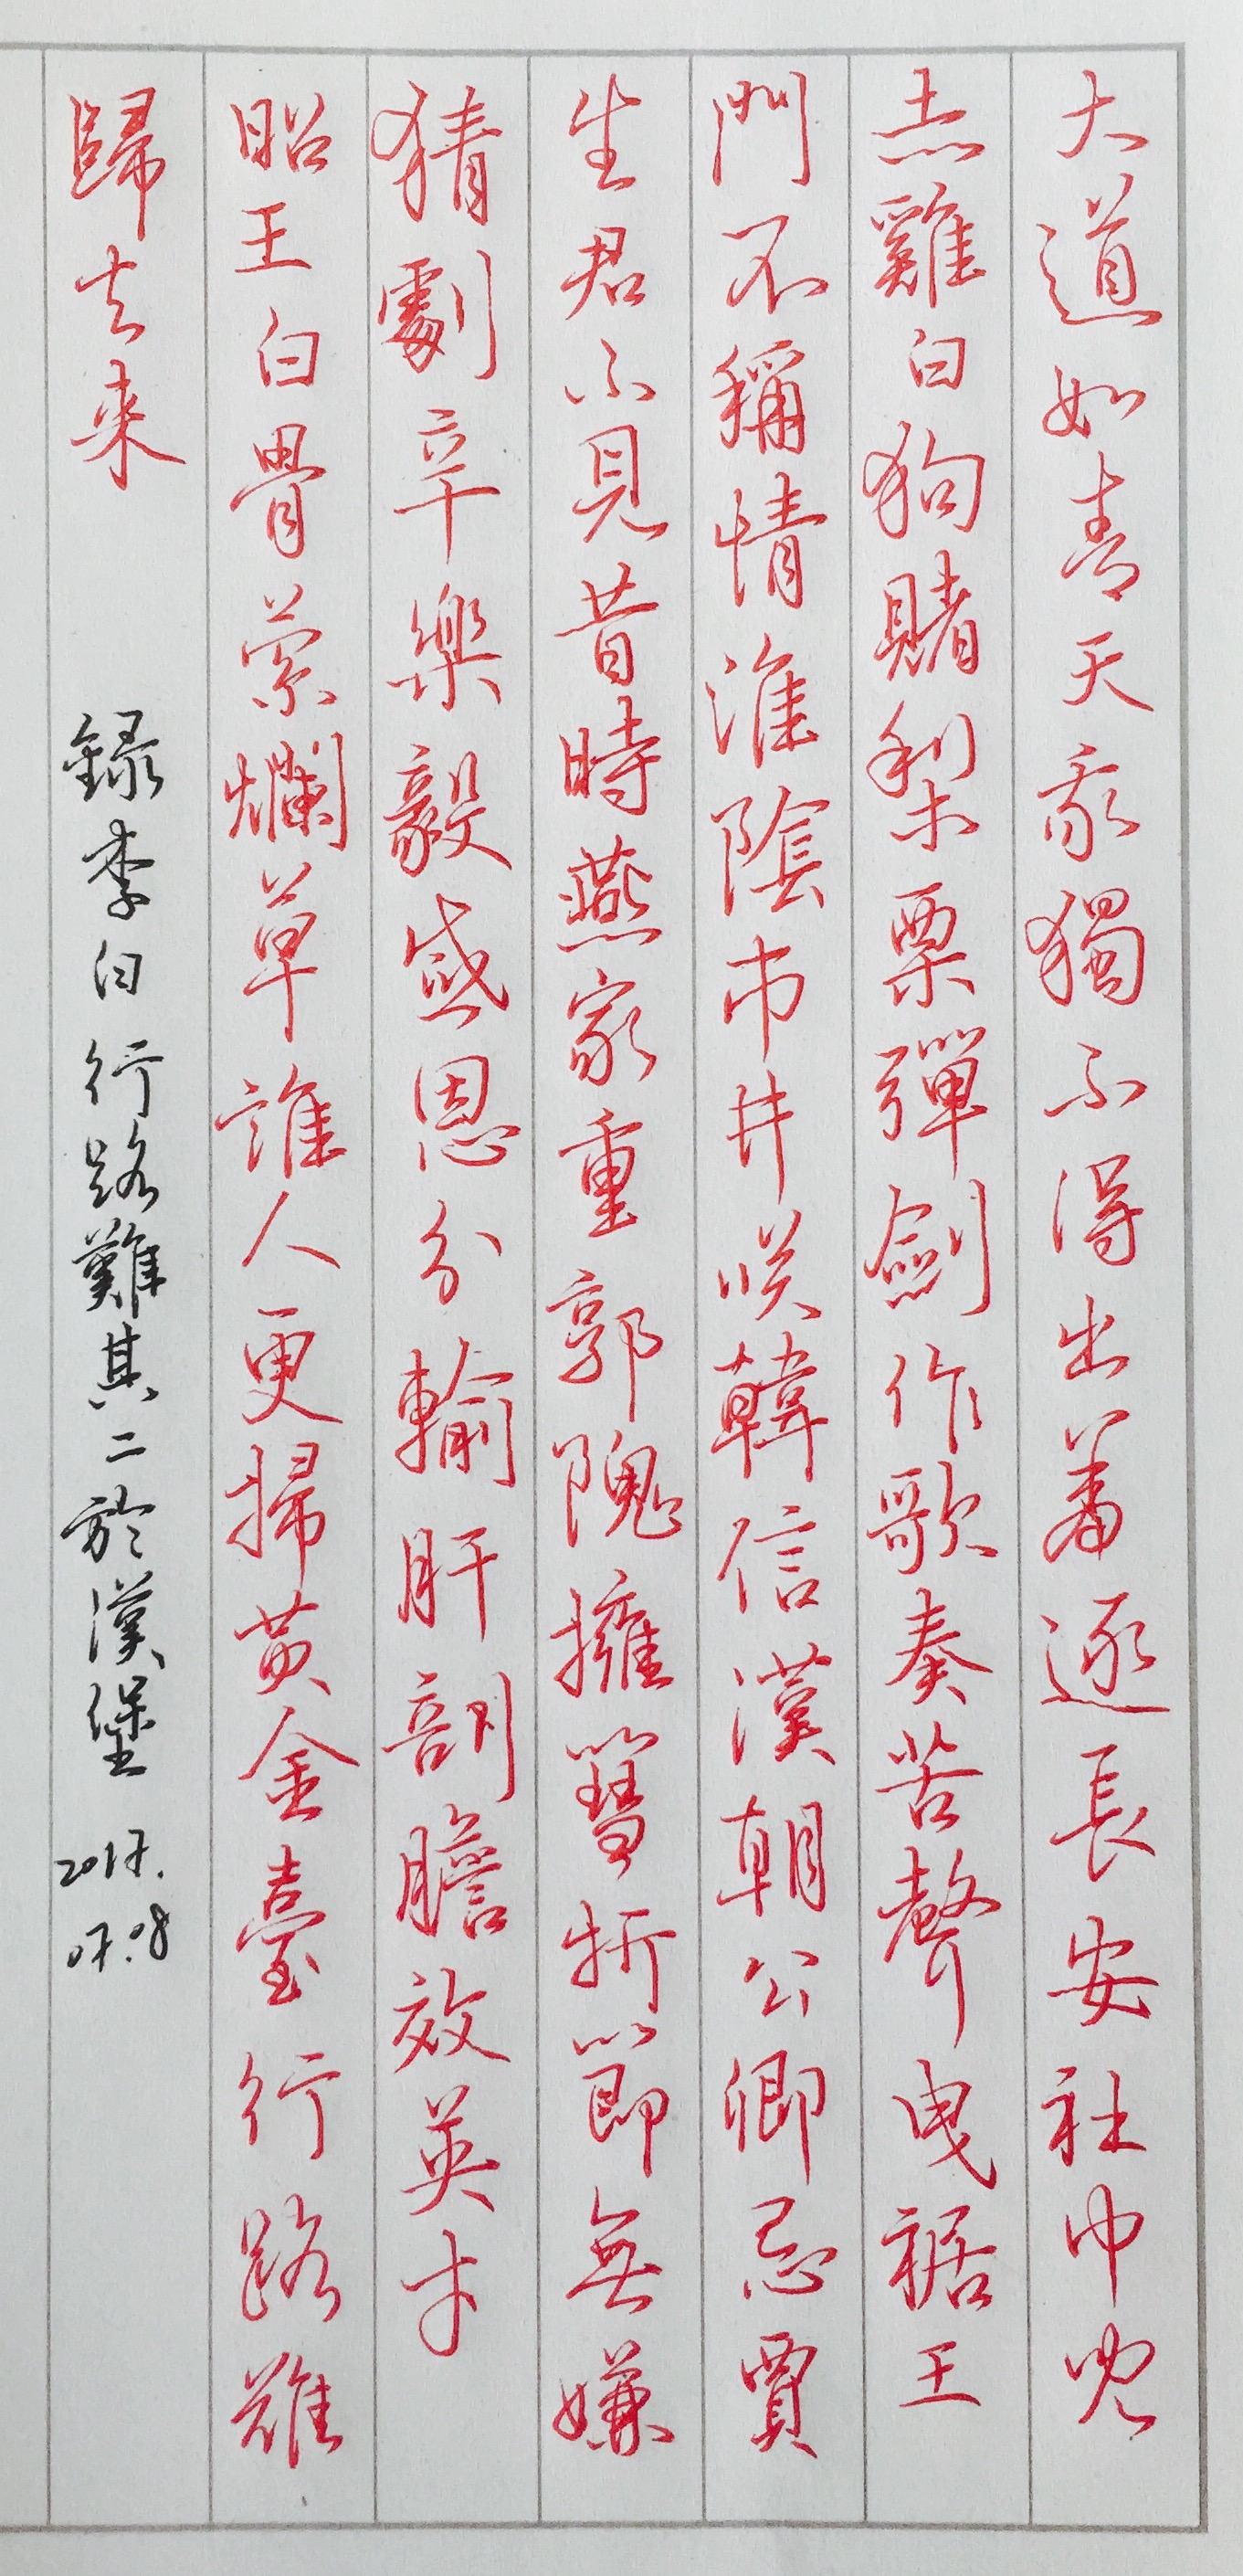 大道如青天我獨不得出羞逐長安社中兒
赤雞白狗賭梨栗彈劍作歌奏苦聲曳裾王
門不稱情淮陰市井咲韓信漢朝公卿忌賈
生君不見昔時燕家重郭隗擁篲折節無嫌
猜劇辛樂毅感恩分輸肝剖膽效英才
昭王白骨縈爛草誰人更掃黃金臺行路難
歸去來
録李白行路難其二於漢堡
2017.
07.08